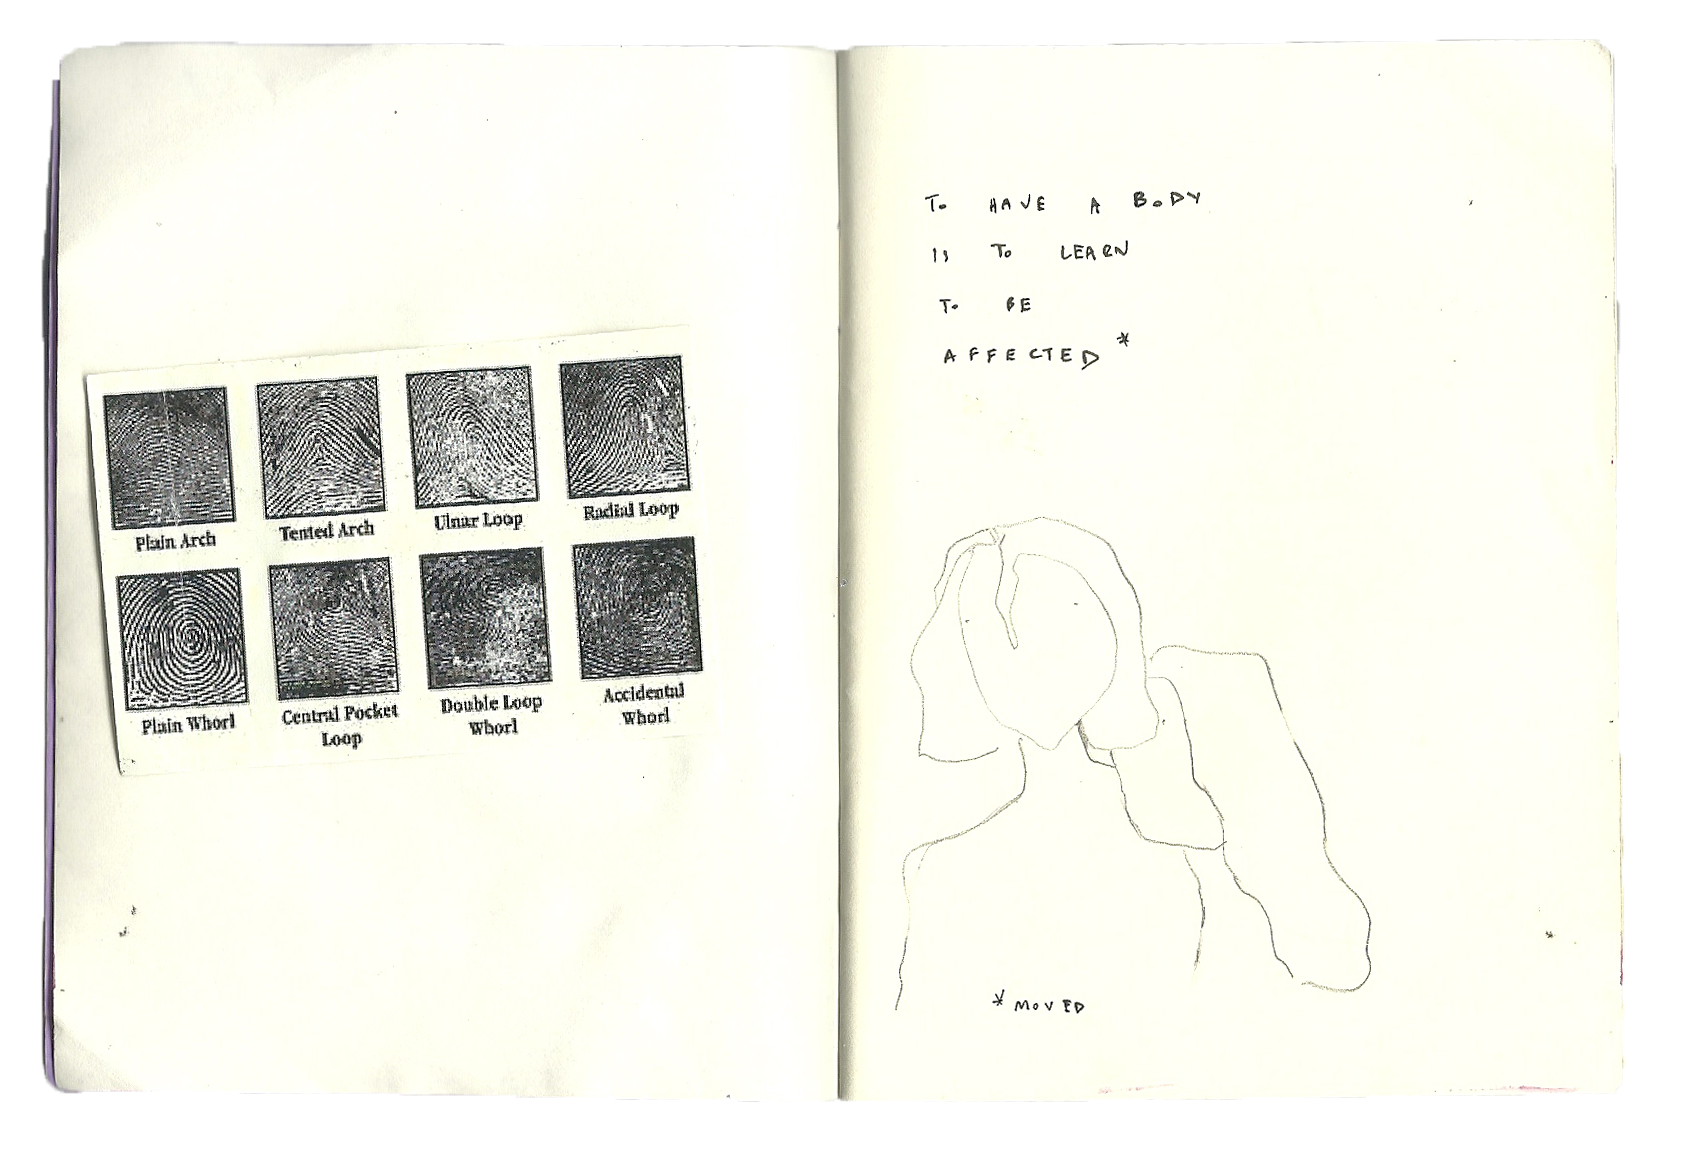 Plain Arch
Tented Arch
Ulnar Loop
Radial Loop
Plain Whorl
Central Pocket
Loop
Double Loop
Whorl
Accidental
Whorl
TO HAVE A BODY
IS TO LEARN
TO BE
AFFECTED*
*MOVED